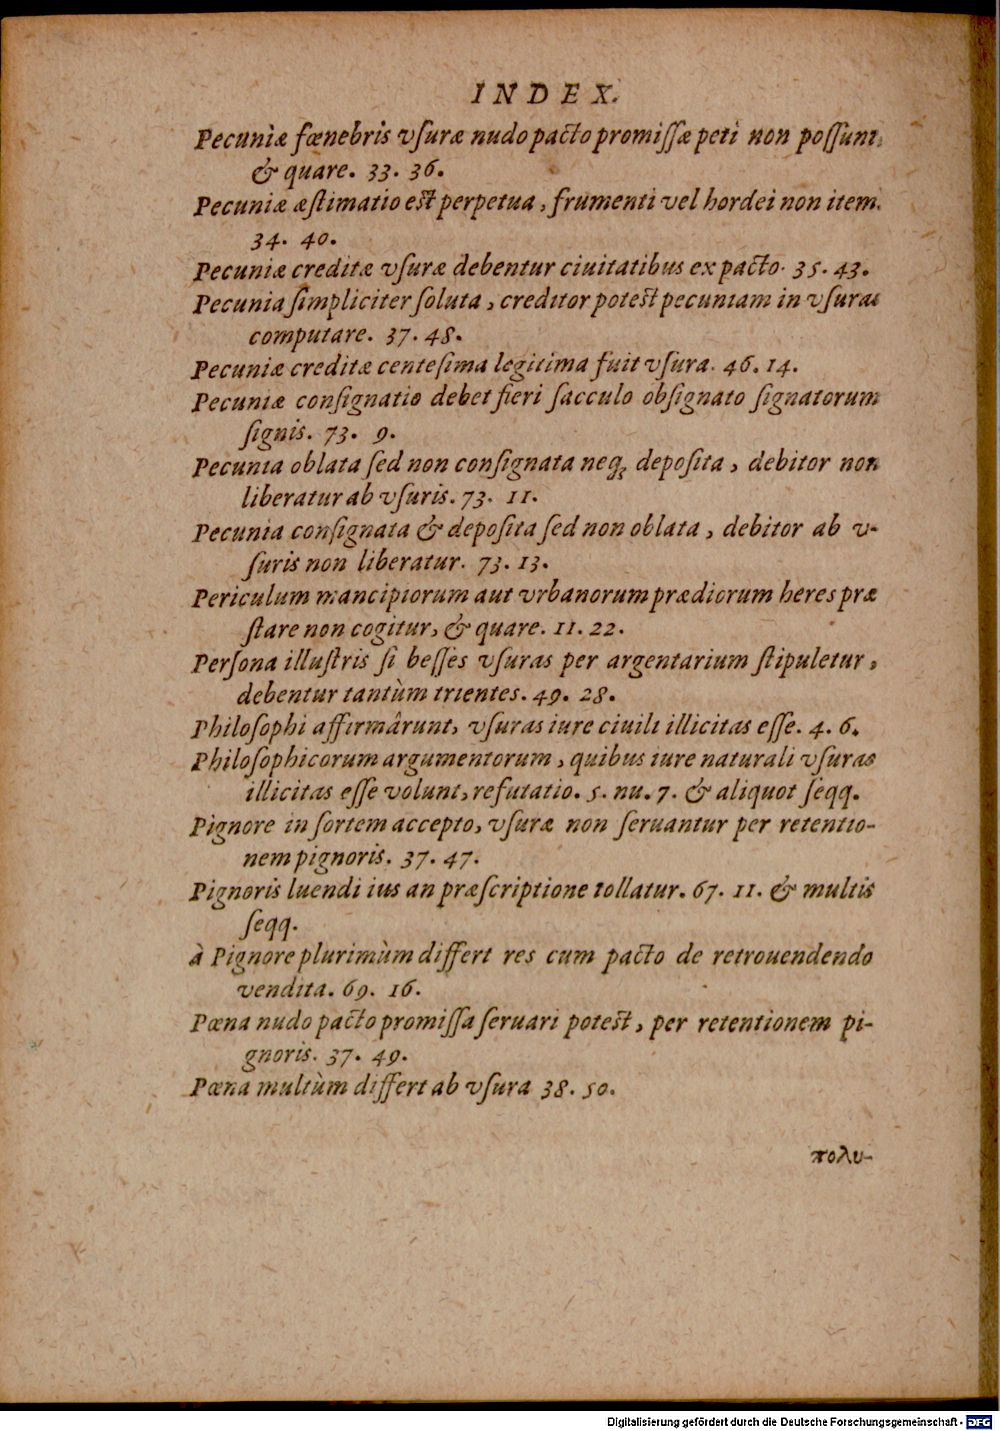 INDEX.
Pecuniæ fœnebris vſuræ nudo pacto promiſſæ peti non poſſunt,
& quare. 33. 36.
Pecuniæ æſtimatio est perpetua, frumenti vel hordei non item.
34. 40.
Pecuniæ creditæ vſuræ debentur ciuitatibus ex pacto. 35. 43.
Pecunia ſimpliciter ſoluta, creditor potest pecuniam in vſuras
computare. 37. 48.
Pecuniæ creditæ centeſima legitima fuit vſura. 46. 14.
Pecuniæ conſignatio debet fieri ſacculo obſignato ſignatorum
ſignis. 73. 9.
Pecunia oblata ſed non conſignata neq; depoſita, debitor non
liberatur ab vſuris. 73. 11.
Pecunia conſignata & depoſita ſed non oblata, debitor ab v-
ſuris non liberatur. 73. 13.
Periculum mancipiorum aut vrbanorum prædiorum heres præ
ſtare non cogitur, & quare. 11. 22.
Perſona illuſtris ſi beſſes vſuras per argentarium ſtipuletur,
debentur tantùm trientes. 49. 28.
Philoſophi affirmârunt, vſuras iure ciuili illicitas eſſe. 4. 6.
Philoſophicorum argumentorum, quibus iure naturali vſuras
illicitas eſſe volunt, refutatio. 5. nu. 7. & aliquot ſeqq.
Pignore in ſortem accepto, vſuræ non ſeruantur per retentio-
nem pignoris. 37. 47.
Pignoris luendi ius an præſcriptione tollatur. 67. 11. & multis
ſeqq.
à Pignore plurimùm differt res cum pacto de retrouendendo
vendita. 69. 16.
Pœna nudo pacto promiſſa ſeruari potest, per retentionem pi-
gnoris. 37. 49.
Pœna multùm differt ab vſura 38. 50.
πολυ-
Digitalisierung gefördert durch die Deutsche Forschungsgemeinschaft - DFG